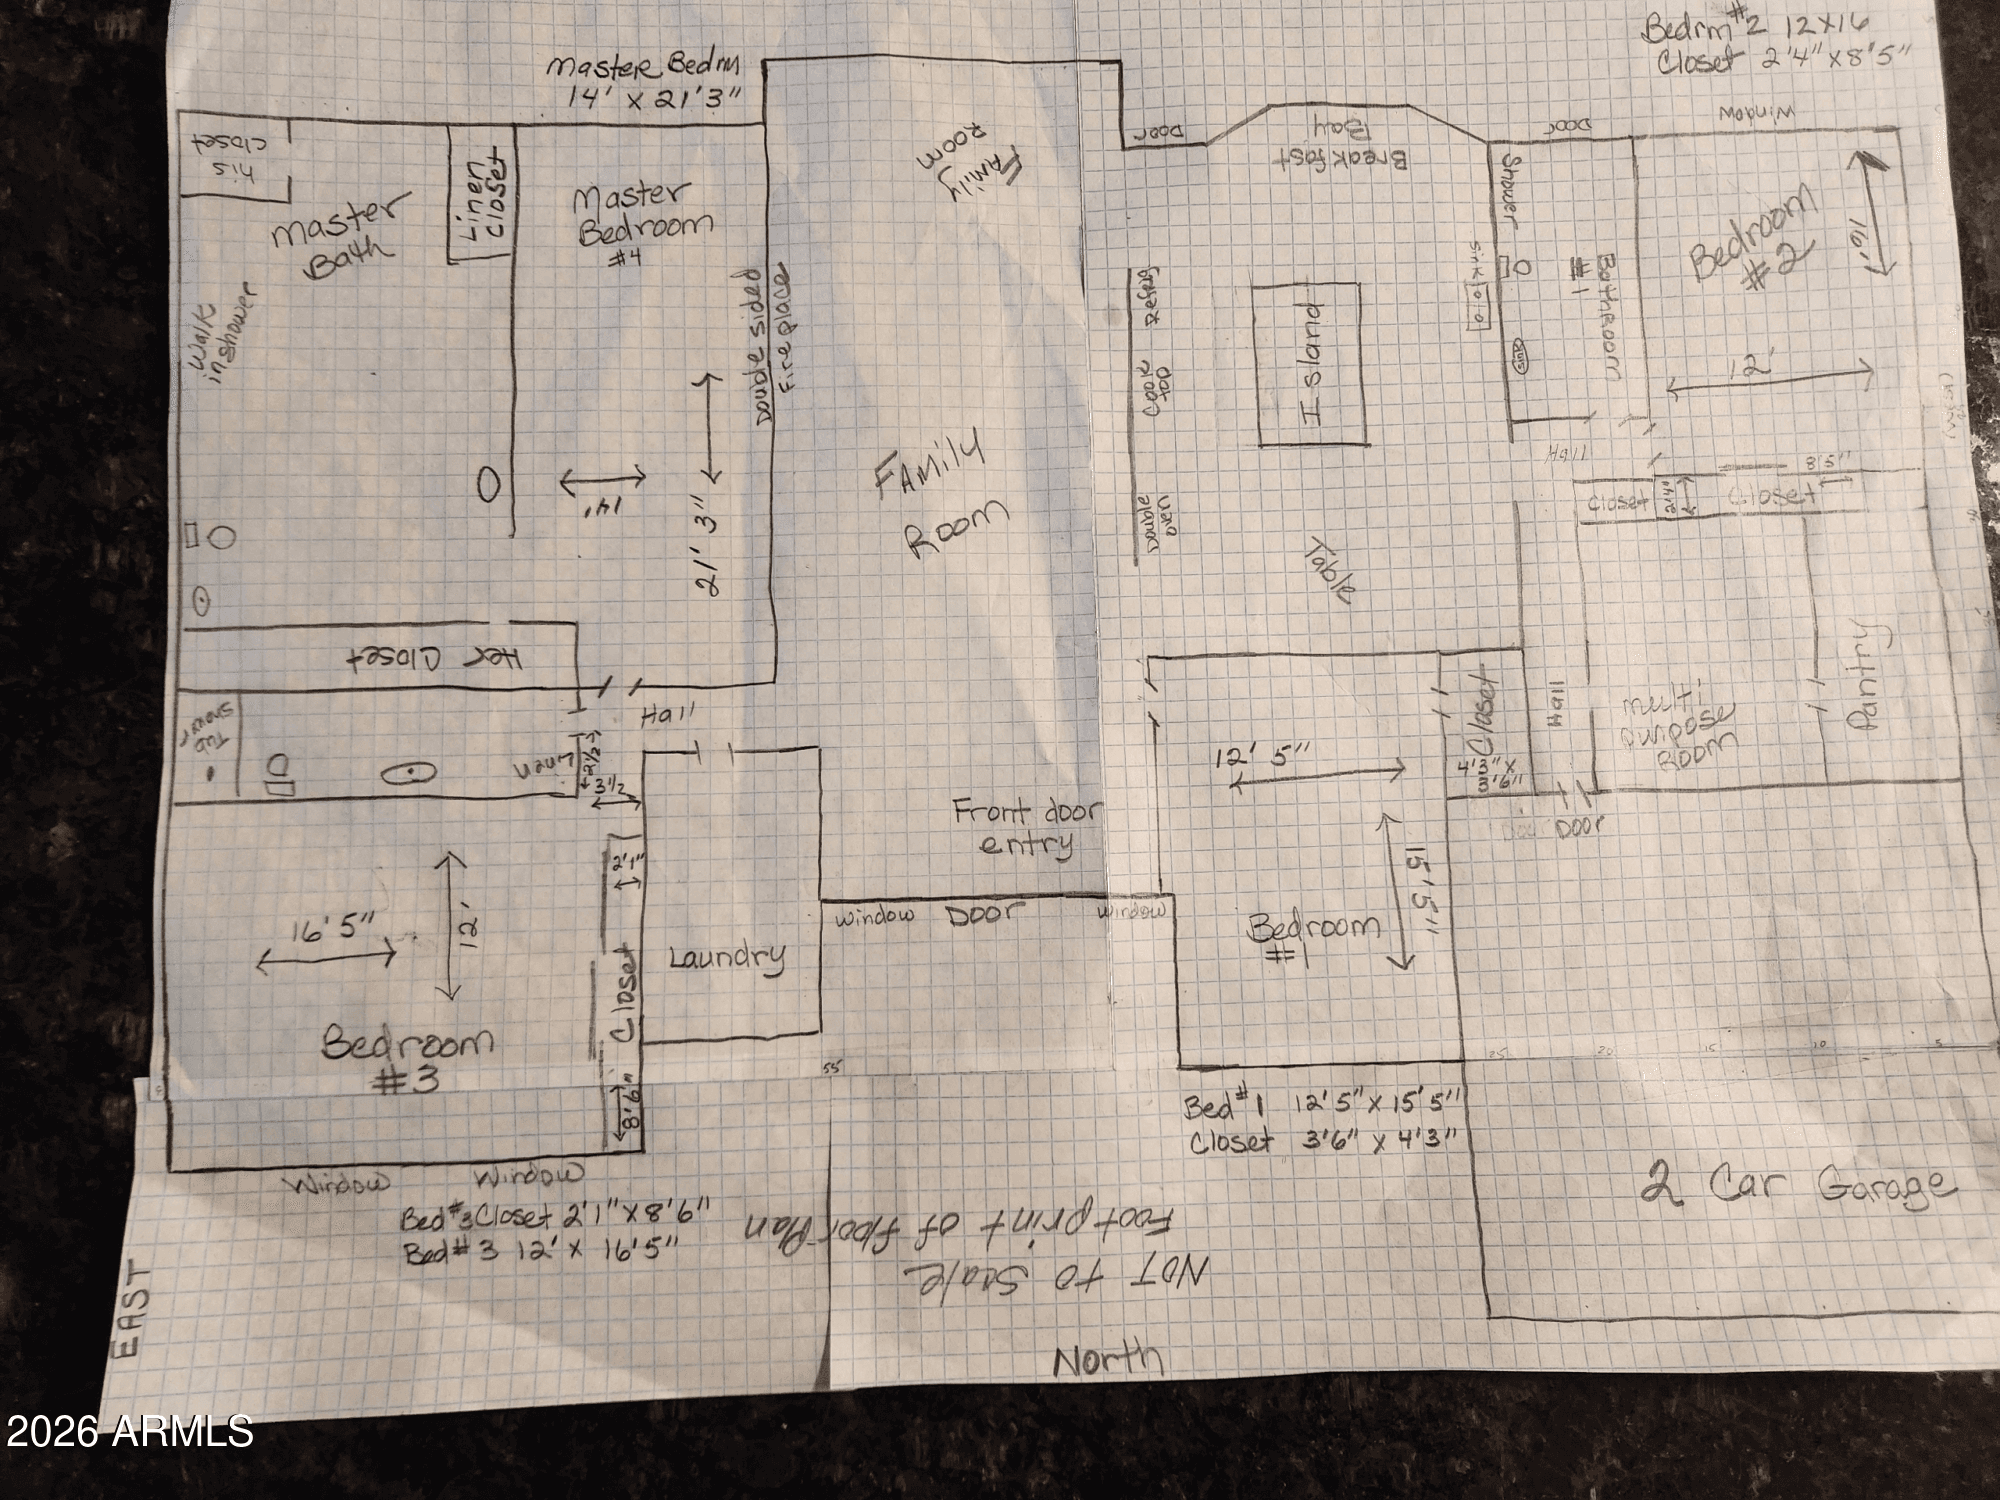 Bedrm #2 12x16
Closet 2'4" x 8'5"
Master Bedrm
14' x 21'3"
Window
Door
Door
Breakfast
Bay
His
Closet
Master
Bath
Linen
Closet
Master
Bedroom
#4
Family
Room
Shower
Bathroom
#1
Bedroom
#2
16'
12'
Walk
in shower
Double sided
Fireplace
Refrig
Cook
Top
Double
Oven
Island
Sink
Sink
Hall
Closet
2'4"
Closet
8'5"
14'
21' 3"
Family
Room
Table
Her Closet
Hall
Tub
Shower
Linen
2 1/2
3 1/2
12' 5"
Closet
4'3" x
3'6"
Hall
Multi
purpose
Room
Pantry
Door
Front door
entry
15'5"
2'1"
16'5"
12'
Closet
8'6"
Laundry
Window Door Window
Bedroom
#1
Bedroom
#3
55
25 20 15 10 5
Bed #1 12'5" x 15'5"
Closet 3'6" x 4'3"
2 Car Garage
Window Window
Bed #3 Closet 2'1" x 8'6"
Bed #3 12' x 16'5"
Not to Scale
Footprint of floor Plan
EAST
North
2026 ARMLS